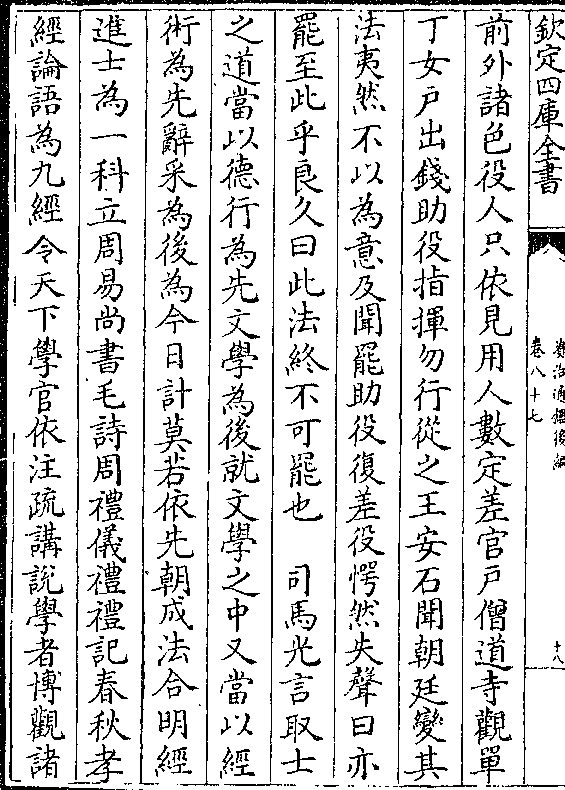 欽定四庫全書
資治通鑑後編
卷八十七
十八
前外諸色役人只依見用人數定差官戶僧道寺觀單
丁女戶出錢助役指揮勿行從之王安石聞朝廷變其
法夷然不以為意及聞罷助役復差役愕然失聲曰亦
罷至此乎良久曰此法終不可罷也　司馬光言取士
之道當以德行為先文學為後就文學之中又當以經
術為先辭采為後為今日計莫若依先朝成法合明經
進士為一科立周易尚書毛詩周禮儀禮禮記春秋孝
經論語為九經令天下學官依注疏講說學者博觀諸